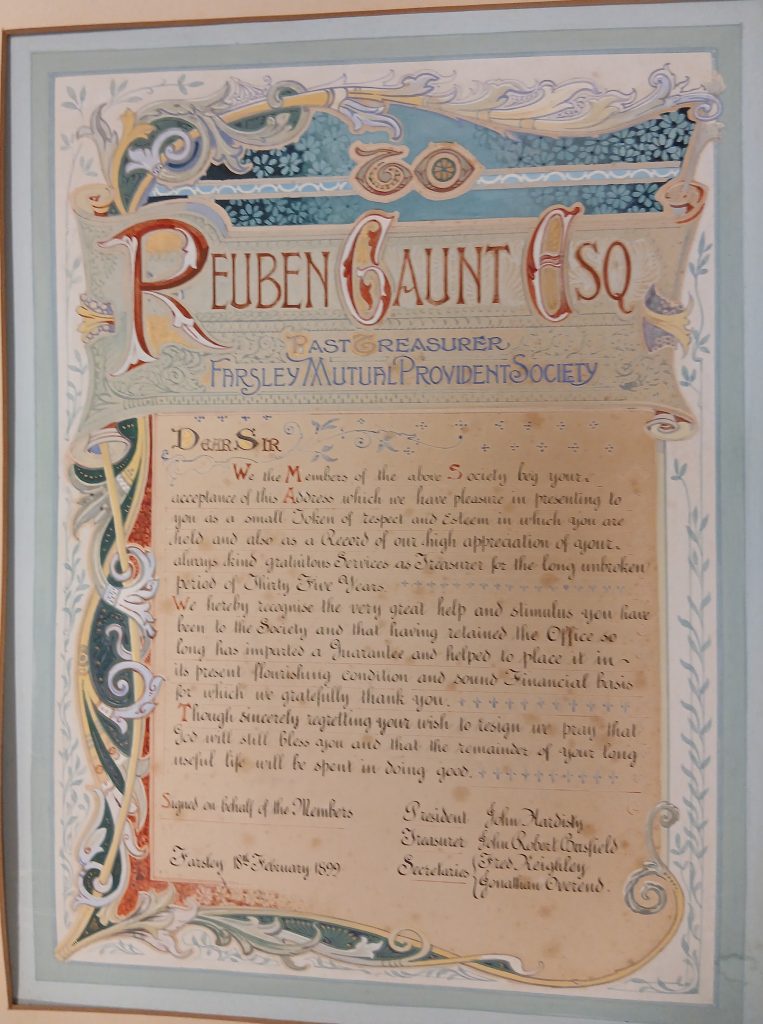 TO
REUBEN GAUNT ESQ
PAST TREASURER
FARSLEY MUTUAL PROVIDENT SOCIETY
DEAR SIR
We the Members of the above Society beg your
acceptance of this Address which we have pleasure in presenting to
you as a small Token of respect and Esteem in which you are
held and also as a Record of our high appreciation of your
always kind gratuitous Services as Treasurer for the long unbroken
period of Thirty Five Years.
We hereby recognise the very great help and stimulus you have
been to the Society and that having retained the Office so
long has imparted a Guarantee and helped to place it in
its present flourishing condition and sound Financial basis
for which we gratefully thank you.
Though sincerely regretting your wish to resign we pray that
God will still bless you and that the remainder of your long
useful life will be spent in doing good.
Signed on behalf of the Members
President John Hardisty
Treasurer John Robert
Secretaries Fred Keighley
Jonathan Overend.
Farsley 18th February 1899